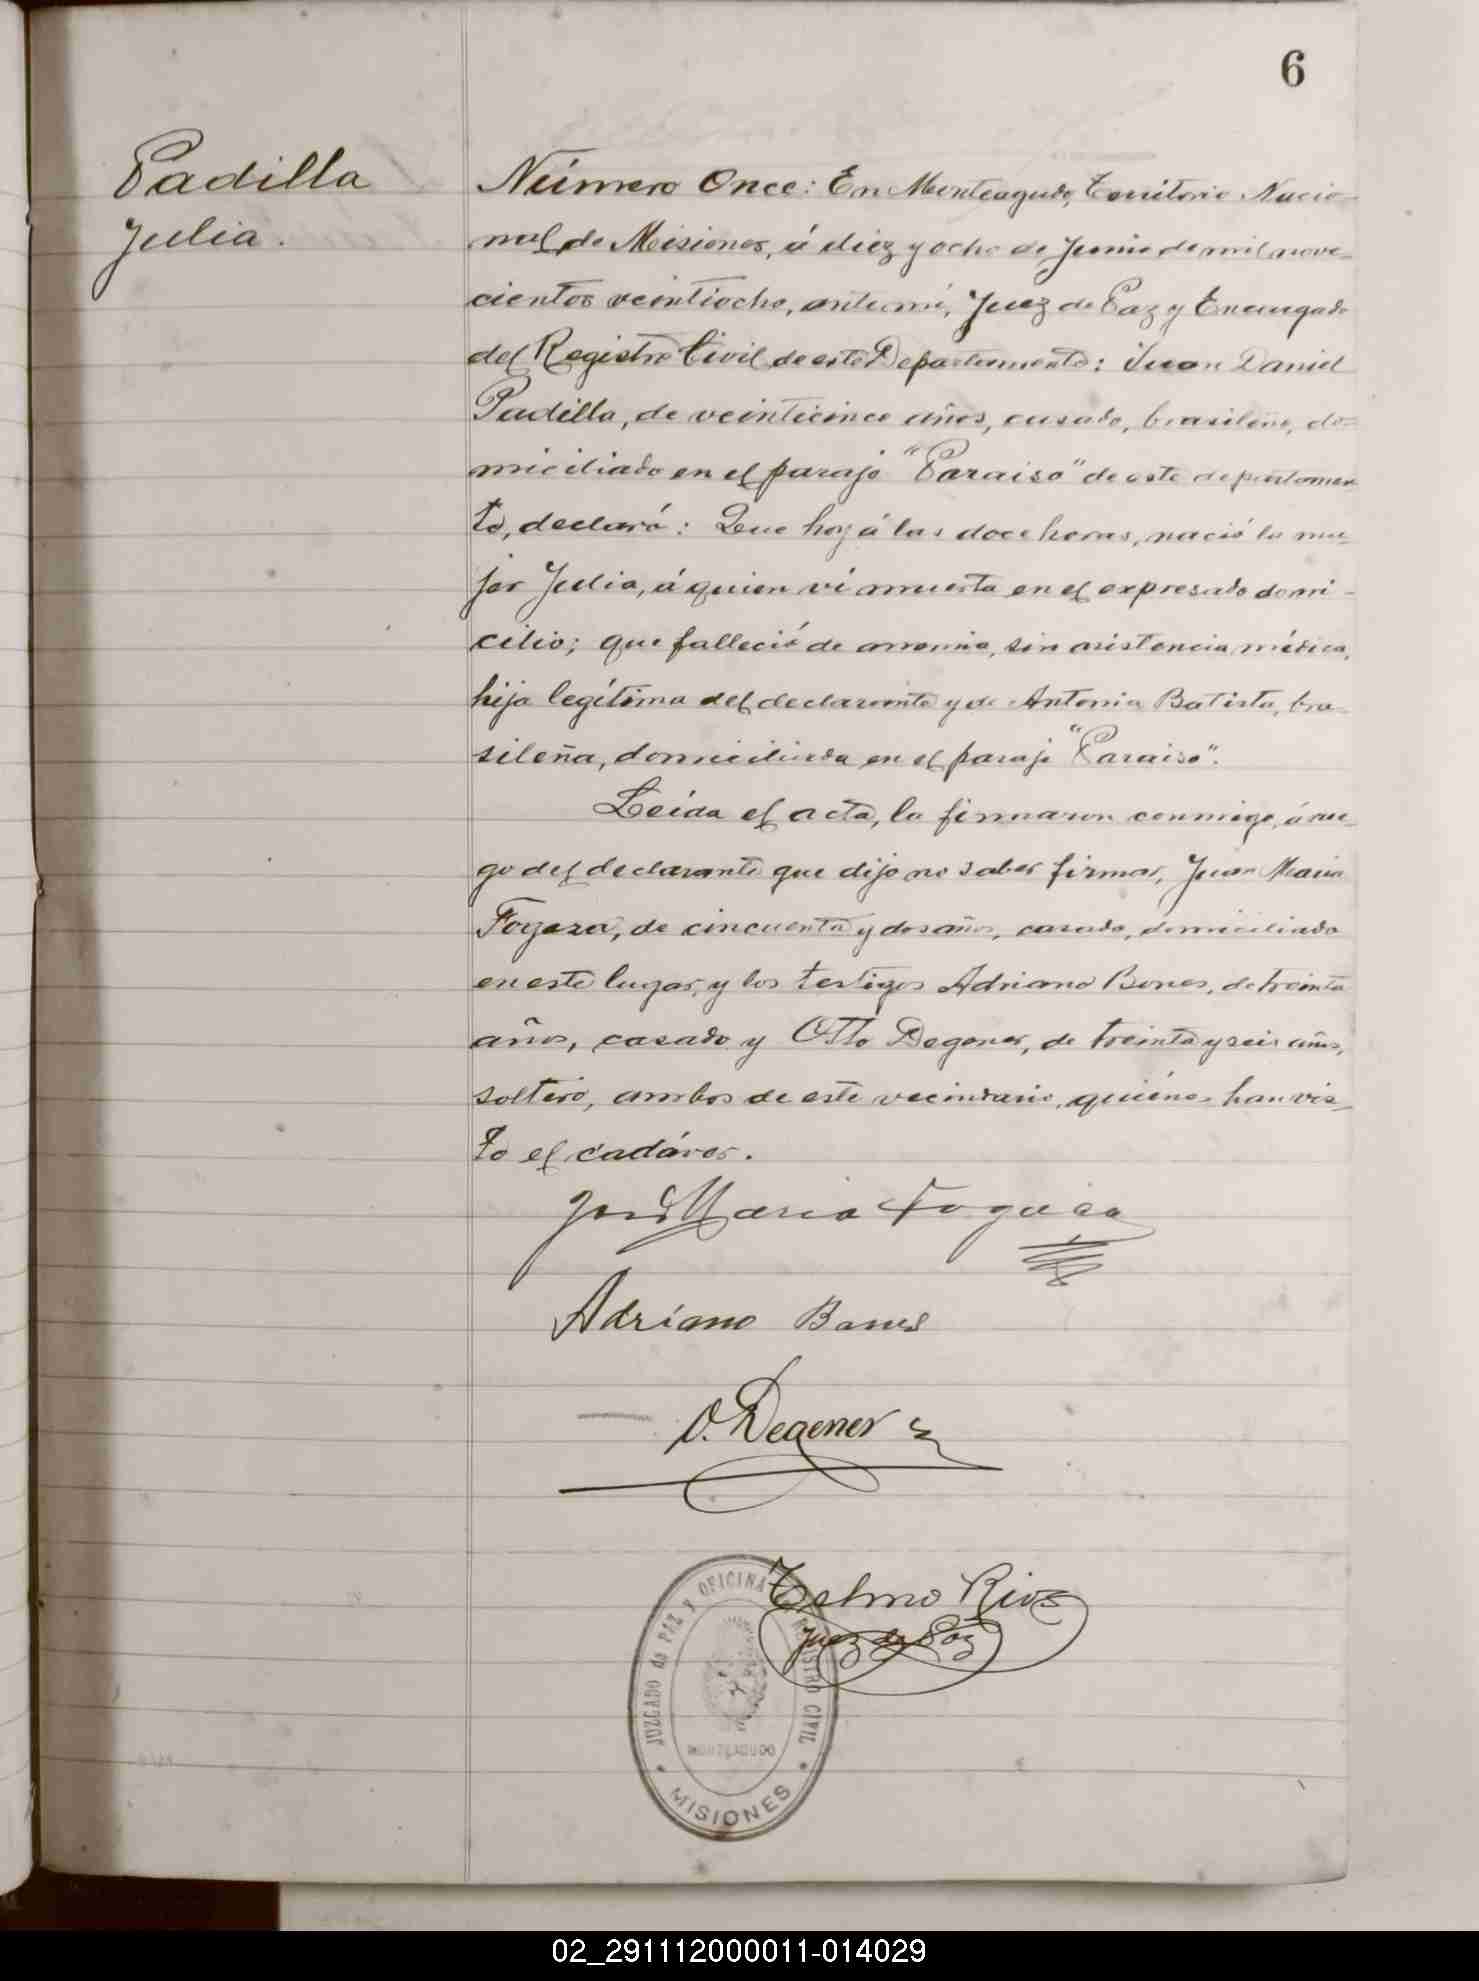 6
Padilla
Julia.
Número Once: En Monteagudo, Territorio Nacio-
nal de Misiones, á diez y ocho de Junio de mil nove-
cientos veintiocho, ante mí, Juez de Paz y Encargado
del Registro Civil de este Departamento: Juan Daniel
Padilla, de veinticinco años, casado, brasileño, do-
miciliado en el paraje "Paraiso" de este departamen
to, declaró: Que hoy á las doce horas, nació la mu-
jer Julia, á quien ví muerta en el expresado domi-
cilio; que falleció de sin asistencia médica,
hija legítima del declarante y de Antonia Batista, bra-
sileña, domiciliada en el paraje "Paraiso".
Leída el acta, la firmaron conmigo, á rue-
go del declarante que dijo no saber firmar, Juan María
Fogaza, de cincuenta y dos años, casado, domiciliado
en este lugar, y los testigos Adriano Bones, de treinta
años, casado y Otto Degener, de treinta y seis años,
soltero, ambos de este vecindario, quiénes han vis-
to el cadáver.
Maria Fogaça
Adriano Bones
O. Degener
Telmo Rios
Juez de Paz
JUZGADO de PAZ Y OFICINA REGISTRO CIVIL
MONTEAGUDO
MISIONES
02_291112000011-014029